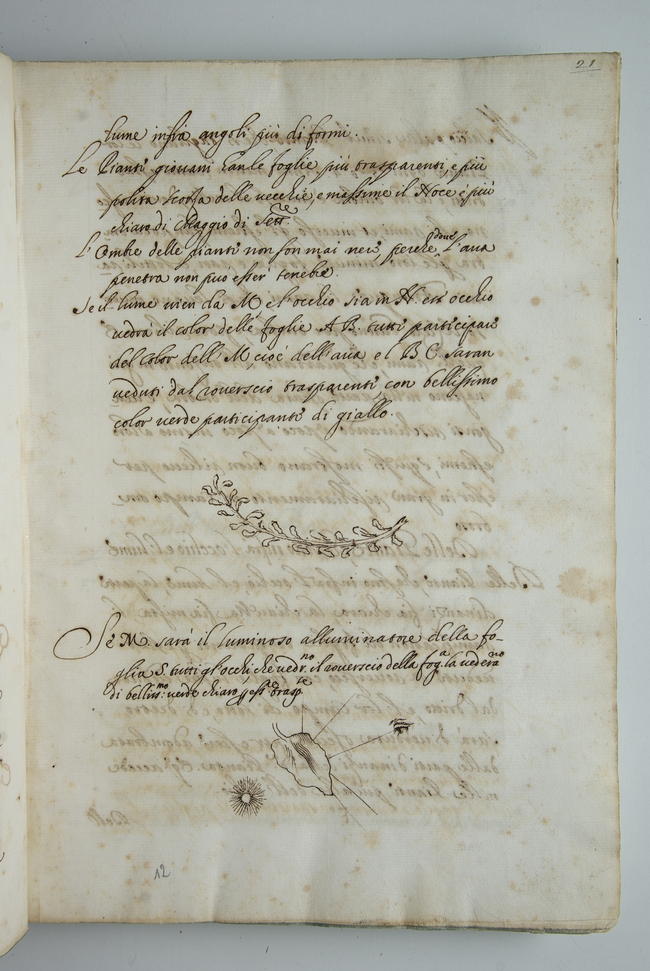 21
lume infrà angoli più difformi.
Le Piante giovani han le foglie più trasparenti, e più
polita scorza delle vecchie, e massime il Noce è più
chiaro di Maggio di Sett.re
L'Ombre delle piante non son mai nere, perche dove l'aria
penetra non può esser tenebre.
Se il lume vien dà M, e l'occhio sia in N. ess' occhio
vedrà il color delle foglie A B. tutte participare
del color dell' M, cioè dell'aria, e l B C. saran
vedute dal roverscio trasparenti, con bellissimo
color verde participante di giallo.
Se M. sarà il luminoso alluminatore della fo-
glia S. tutti gl'occhi che vedr.no il roverscio della fog.a la vedera.no
di belliss.mo verde chiaro p esser trasp.te
12